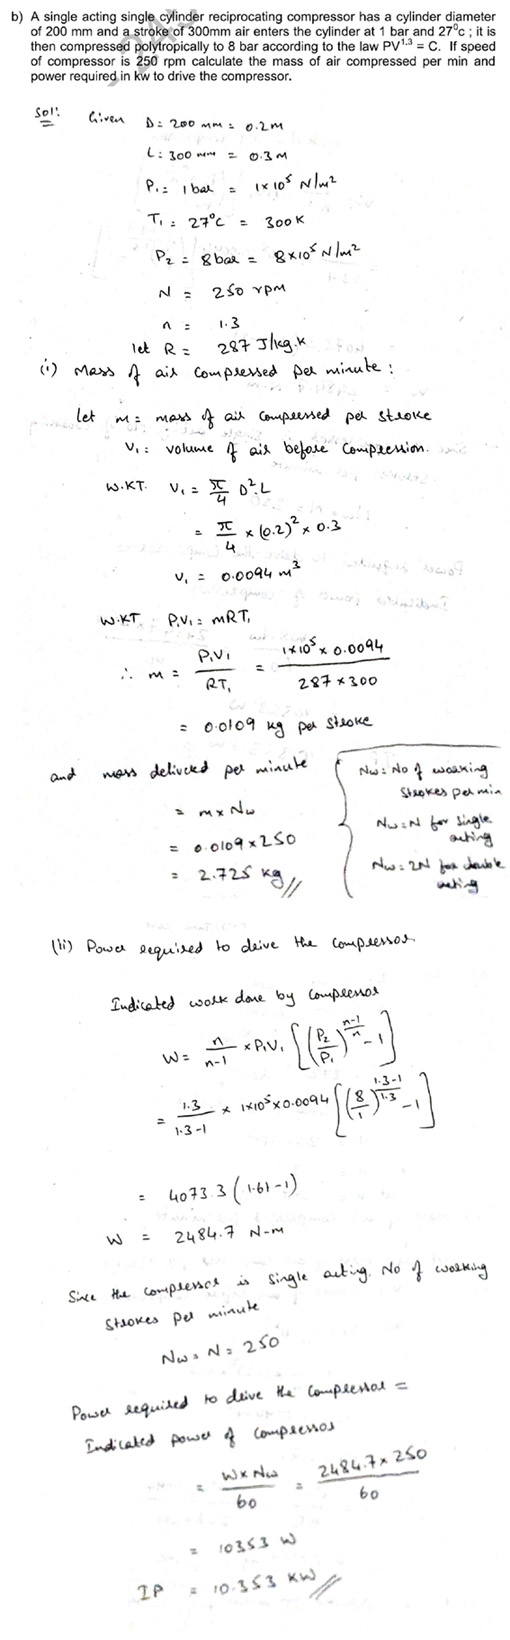 b) A single acting single cylinder reciprocating compressor has a cylinder diameter
of 200 mm and a stroke of 300mm air enters the cylinder at 1 bar and 27⁰c ; it is
then compressed polytropically to 8 bar according to the law PV^1.3 = C. If speed
of compressor is 250 rpm calculate the mass of air compressed per min and
power required in kw to drive the compressor.
Sol: Given D = 200 mm = 0.2 m
L : 300 mm = 0.3 m
P₁ = 1 bar = 1×10⁵ N/m²
T₁ = 27°C = 300 K
P₂ = 8 bar = 8×10⁵ N/m²
N = 250 rpm
n = 1.3
let R = 287 J/kg.K
(i) Mass of air compressed per minute :
Let m = mass of air compressed per stroke
V₁ = volume of air before compression.
W.K.T. V₁ = π/4 D².L
= π/4 × (0.2)² × 0.3
V₁ = 0.0094 m³
W.K.T P₁V₁ = mRT₁
∴ m = P₁V₁/RT₁ = 1×10⁵ × 0.0094 / 287 × 300
= 0.0109 kg per stroke
and mass delivered per minute
= m × Nw
= 0.0109 × 250
= 2.725 kg //
Nw = No of working
strokes per min
Nw = N for single
acting
Nw = 2N for double
acting
(ii) Power required to drive the compressor
Indicated work done by compressor
W = n/n-1 × P₁V₁ [(P₂/P₁)^(n-1/n) - 1]
= 1.3/1.3-1 × 1×10⁵ × 0.0094 [(8/1)^(1.3-1/1.3) - 1]
= 4073.3 (1.61 - 1)
W = 2484.7 N-m
Since the compressor is single acting. No of working
strokes per minute
Nw = N = 250
Power required to drive the compressor =
Indicated power of compressor
= W × Nw / 60 = 2484.7 × 250 / 60
= 10353 W
IP = 10.353 KW //